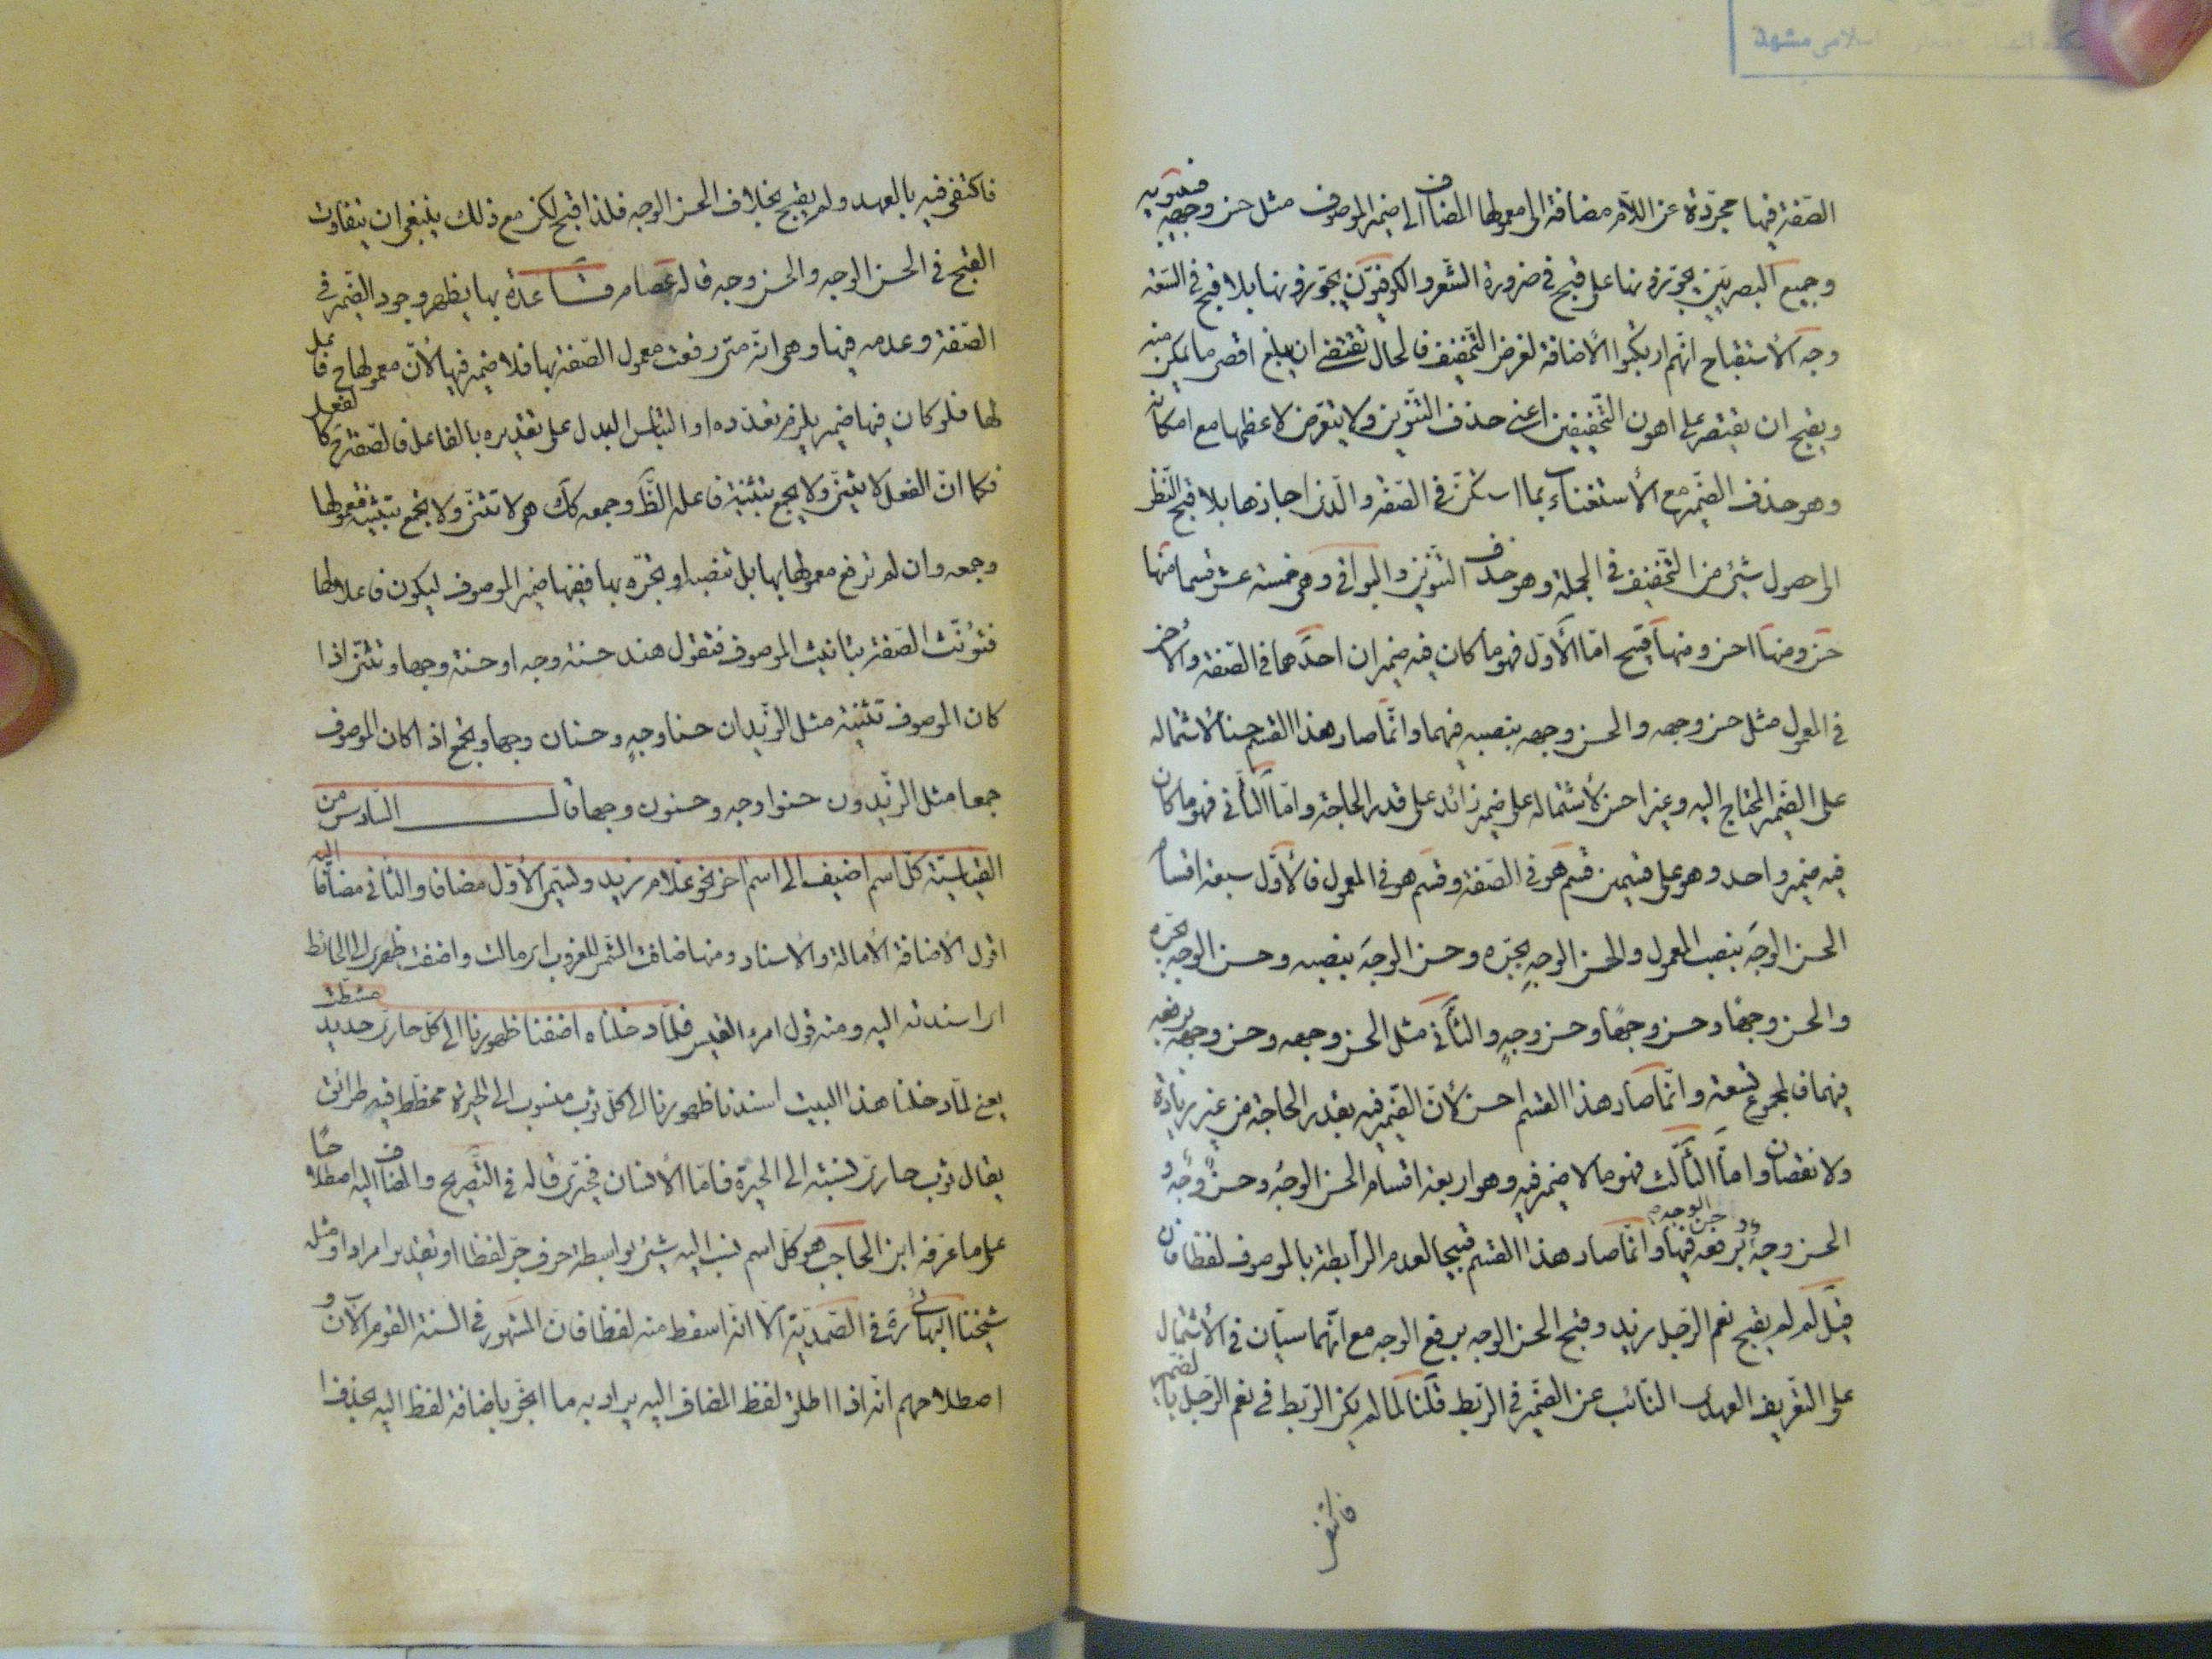 الصّفة فيها مجرّدة عن اللّام مضافة الى معمولها المضاف الى ضمير الموصوف مثل حسن وجهه فسيبويه
وجميع البصريّين يجوّزونها على قبح في ضرورة الشّعر والكوفيّون يجوّزونها بلا قبح في السّعة
وجه الأستقباح انّهم ارتكبوا الأضافة لغرض التّخفيف فالحال تقتضى ان يبلغ اقصى ما يمكن منه
ويقبح ان يقتصر على اهون التّخفيفين اعنى حذف التّنوين ولا يتعرّض لاعظمهما مع امكانه
وهو حذف الضّمير مع الأستغناء بما استكنّ في الصّفة والّذى اجازها بلا قبح النّظر
الى حصول شيئ من التّخفيف في الجملة وهو حذف التّنوين والبواقى وهى خمسة عشر قسما منها
حسن ومنها احسن ومنها قبيح امّا الأوّل فهو ما كان فيه ضميران احدهما في الصّفة والأخر
في المعمول مثل حسن وجهه والحسن وجهه بنصبه فيهما وانّما صار هذا القسم حسنا لأشتماله
على الضّمير المحتاج اليه وغير احسن لأشتماله على ضمير زائد على قدر الحاجة وامّا الثّانى فهو ما كان
فيه ضمير واحد وهو على قسمين قسم هو في الصّفة وقسم هو في المعمول فالأوّل سبعة اقسام
الحسن الوجهَ بنصب المعمول والحسن الوجهِ بجرّه وحسن الوجهَ بنصبه وحسن الوجهِ بجرّه
والحسن وجها وحسن وجهًا وحسن وجهٍ والثّانى مثل الحسن وجهه وحسن وجهه برفعه
فيهما فالمجموع تسعة وانّما صار هذا القسم احسن لأنّ الضّمير فيه بقدر الحاجة من غير زيادة
ولا نقصان وامّا الثّالث فهو ما لا ضمير فيه وهو اربعة اقسام الحسن الوجهُ وحسنٌ وجهٌ و
الحسن وجهٌ وحسن الوجه برفعه فيها وانّما صار هذا القسم قبيحا لعدم الرّابطة بالموصوف لفظا فان
قيل لم لم يقبح نعم الرّجل زيد وقبح الحسن الوجه برفع الوجه مع انّهما سيّان في الأشتمال
على التّعريف العهدى النّائب عن الضّمير في الرّبط قلنا لمّا لم يكن الرّبط في نعم الرّجل بالضمير
فاكتفى
فاكتفى فيه بالعهد ولم يقبح بخلاف الحسن الوجه فلذا قبح لكن مع ذلك ينبغى ان يتفاوت
القبح في الحسن الوجه والحسن وجه قاله عصام قاعدة بها يظهر وجود الضّمير في
الصّفة وعدمه فيها وهى انّه متى رفعت معمول الصّفة بها فلا ضمير فيها لأنّ معمولها ح فاعل
لها فلو كان فيها ضمير يلزم تعدّده او التباس البدل على تقديره بالفاعل فالصّفة ح كالفعل
فكما انّ الفعل لا يثنّى ولا يجمع بتثنية فاعله الظّ وجمعه كك هى لا تثنّى ولا تجمع بتثنية معمولها
وجمعه وان لم ترفع معمولها بها بل تنصبه او تجرّه بها ففيها ضمير الموصوف ليكون فاعلا لها
فتؤنّث الصّفة بتأنيث الموصوف فتقول هند حسنة وجه او حسنة وجها وتثنّى اذا
كان الموصوف تثنية مثل الزّيدان حسنا وجهٍ وحسنان وجها وتجمع اذا كان الموصوف
جمعا مثل الزّيدون حسنوا وجه وحسنون وجها قال السّادس من
القياسيّة كلّ اسم اضيف الى اسم اخر نحو غلام زيد ويسمّى الأوّل مضافا والثّانى مضافا اليه
اقول الأضافة الأمالة والأسناد ومنها ضافت الشّمس للغروب اى مالت واضفت ظهرى الى الحائط
اى اسندته اليه ومنه قول امرء القيس فلمّا دخلناه اضفنا ظهورنا الى كلّ حارىّ جديد مشطّب
يعنى لمّا دخلنا هذا البيت اسندنا ظهورنا الى كلّ ثوب منسوب الى الحيرة مخطّط فيه طرائق
يقال ثوب حارىّ لنسبته الى الحيرة فامّا الأنسان فحيرى قاله في التّصريح والمضاف اليه اصطلاحا
على ما عرّفه ابن الحاجب هو كلّ اسم نسب اليه شيئ بواسطة حرف جرّ لفظا او تقديرا مرادا ومثله
شيخنا البهائى ره في الصّمديّة الّا انّه اسقط منه لفظا فانّ المشهور في السنة القوم الأن و
اصطلاحهم انّه اذا اطلق لفظ المضاف اليه يراد به ما انجرّ باضافة لفظ اليه بحذف